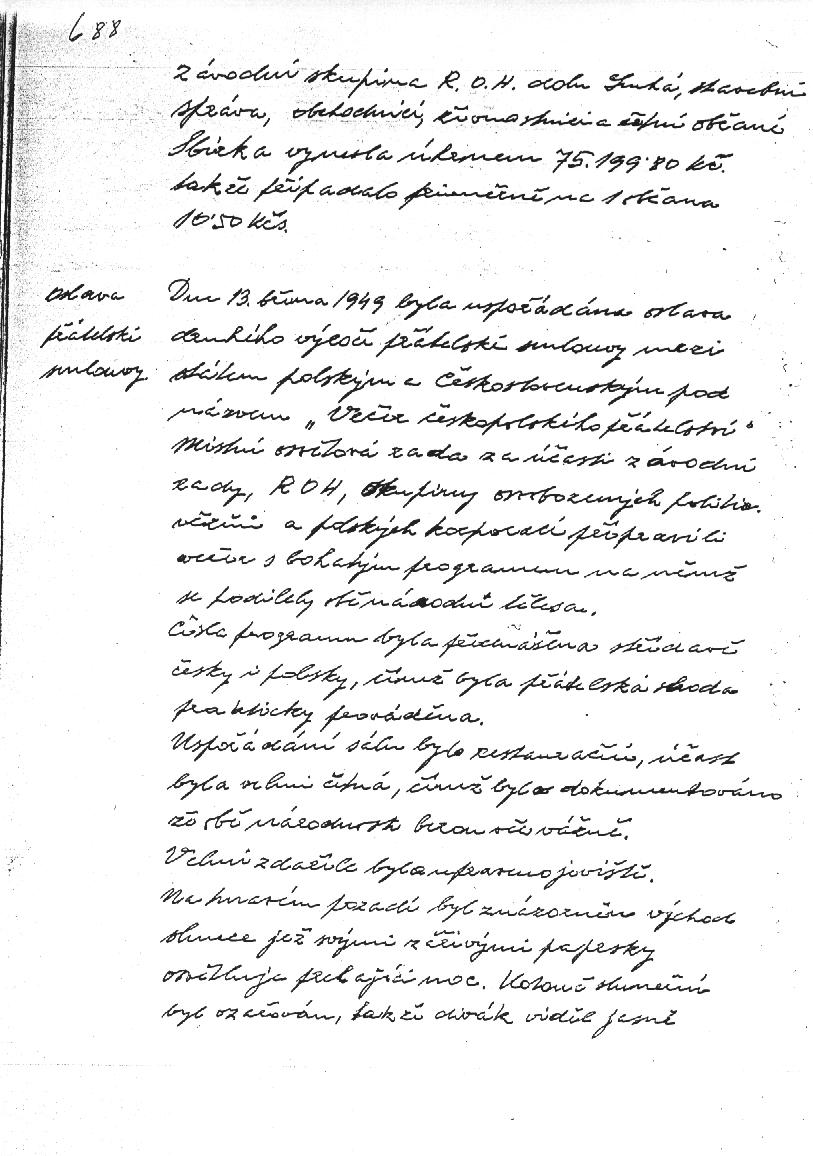 688
závodní skupina R.O.H. dolu Suchá, stavební
správa, obchodníci, živnostníci a četní občané
Sbírka vynesla úhrnem 75.199·80 kč.
takže připadalo průměrně na 1 občana
10·50 Kčs.
oslava
přátelské
smlouvy.
Dne 13. března 1949 byla uspořádána oslava
druhého výročí přátelské smlouvy mezi
státem polským a Československým pod
názvem „Večer českopolského přátelství“
Místní osvětová rada za účasti závodní
rady, ROH, skupiny osvobozených politic.
vězňů a polských korporací připravili
večer s bohatým programem na němž
se podílely obě národní tělesa.
Čísla programu byla přednášena střídavě
česky i polsky, čímž byla přátelská shoda
prakticky prováděna.
Uspořádání sálu bylo restaurační, účast
byla velmi četná, čímž bylo dokumentováno
že obě národnosti berou věc vážně.
Velmi zdařile bylo upraveno jeviště.
Na tmavém pozadí byl znázorněn východ
slunce jež svými zářivými paprsky
osvětluje prchající noc. Kotouč sluneční
byl ozařován, takže divák viděl jasně